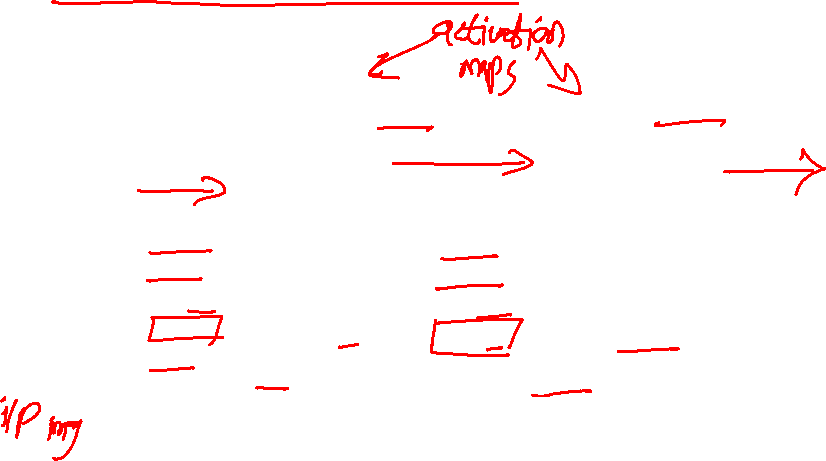 activation
maps
i/p img